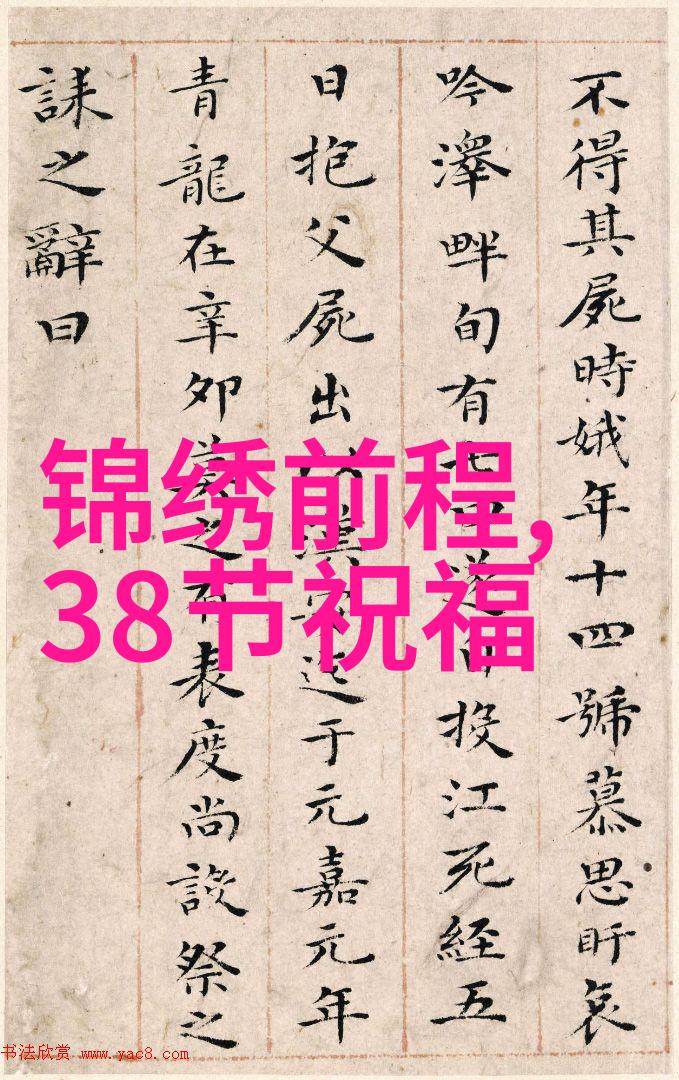 不得其屍時娥年十四號慕思盱哀
吟澤畔旬有七遂投江死經五
日抱父屍出漢迄于元嘉元年
青龍在辛卯之表度尚設祭之
誄之辭曰
锦绣前程,
38节祝福
书法欣赏 www.yac8.com